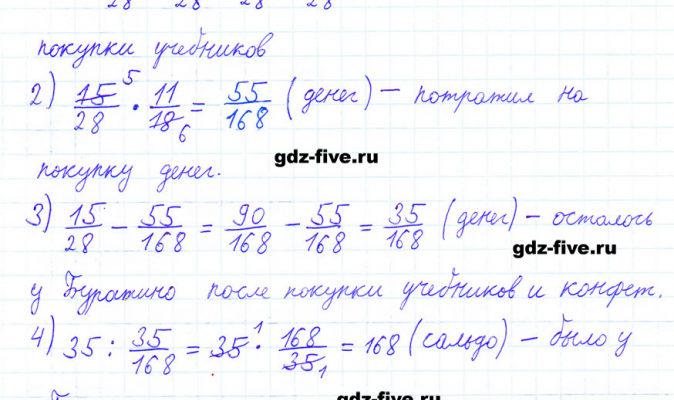 28 28 28 28
покупки учебников
2) 15/28 5 · 11/18 6 = 55/168 (денег) – потратил на
gdz-five.ru
покупку денег.
3) 15/28 – 55/168 = 90/168 – 55/168 = 35/168 (денег) – осталось
gdz-five.ru
у Буратино после покупки учебников и конфет.
4) 35 : 35/168 = 35 1 · 168/35 1 = 168 (сальдо) – было у
gdz-five.ru